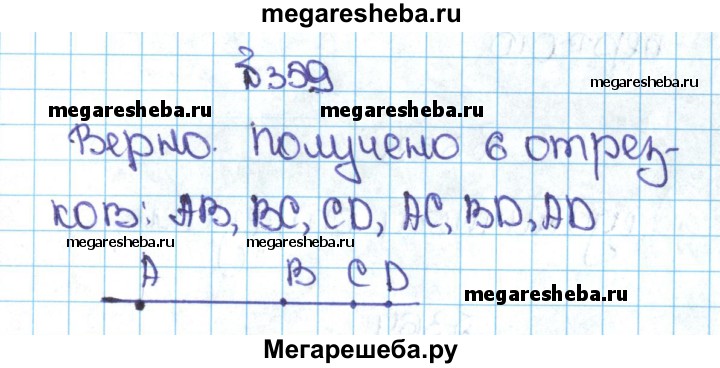 megaresheba.ru
№359
megaresheba.ru
megaresheba.ru megaresheba.ru
Верно. Получено 6 отрез-
ков: AB, BC, CD, AC, BD, AD
megaresheba.ru megaresheba.ru
A B C D
megaresheba.ru
Мегарешеба.ру